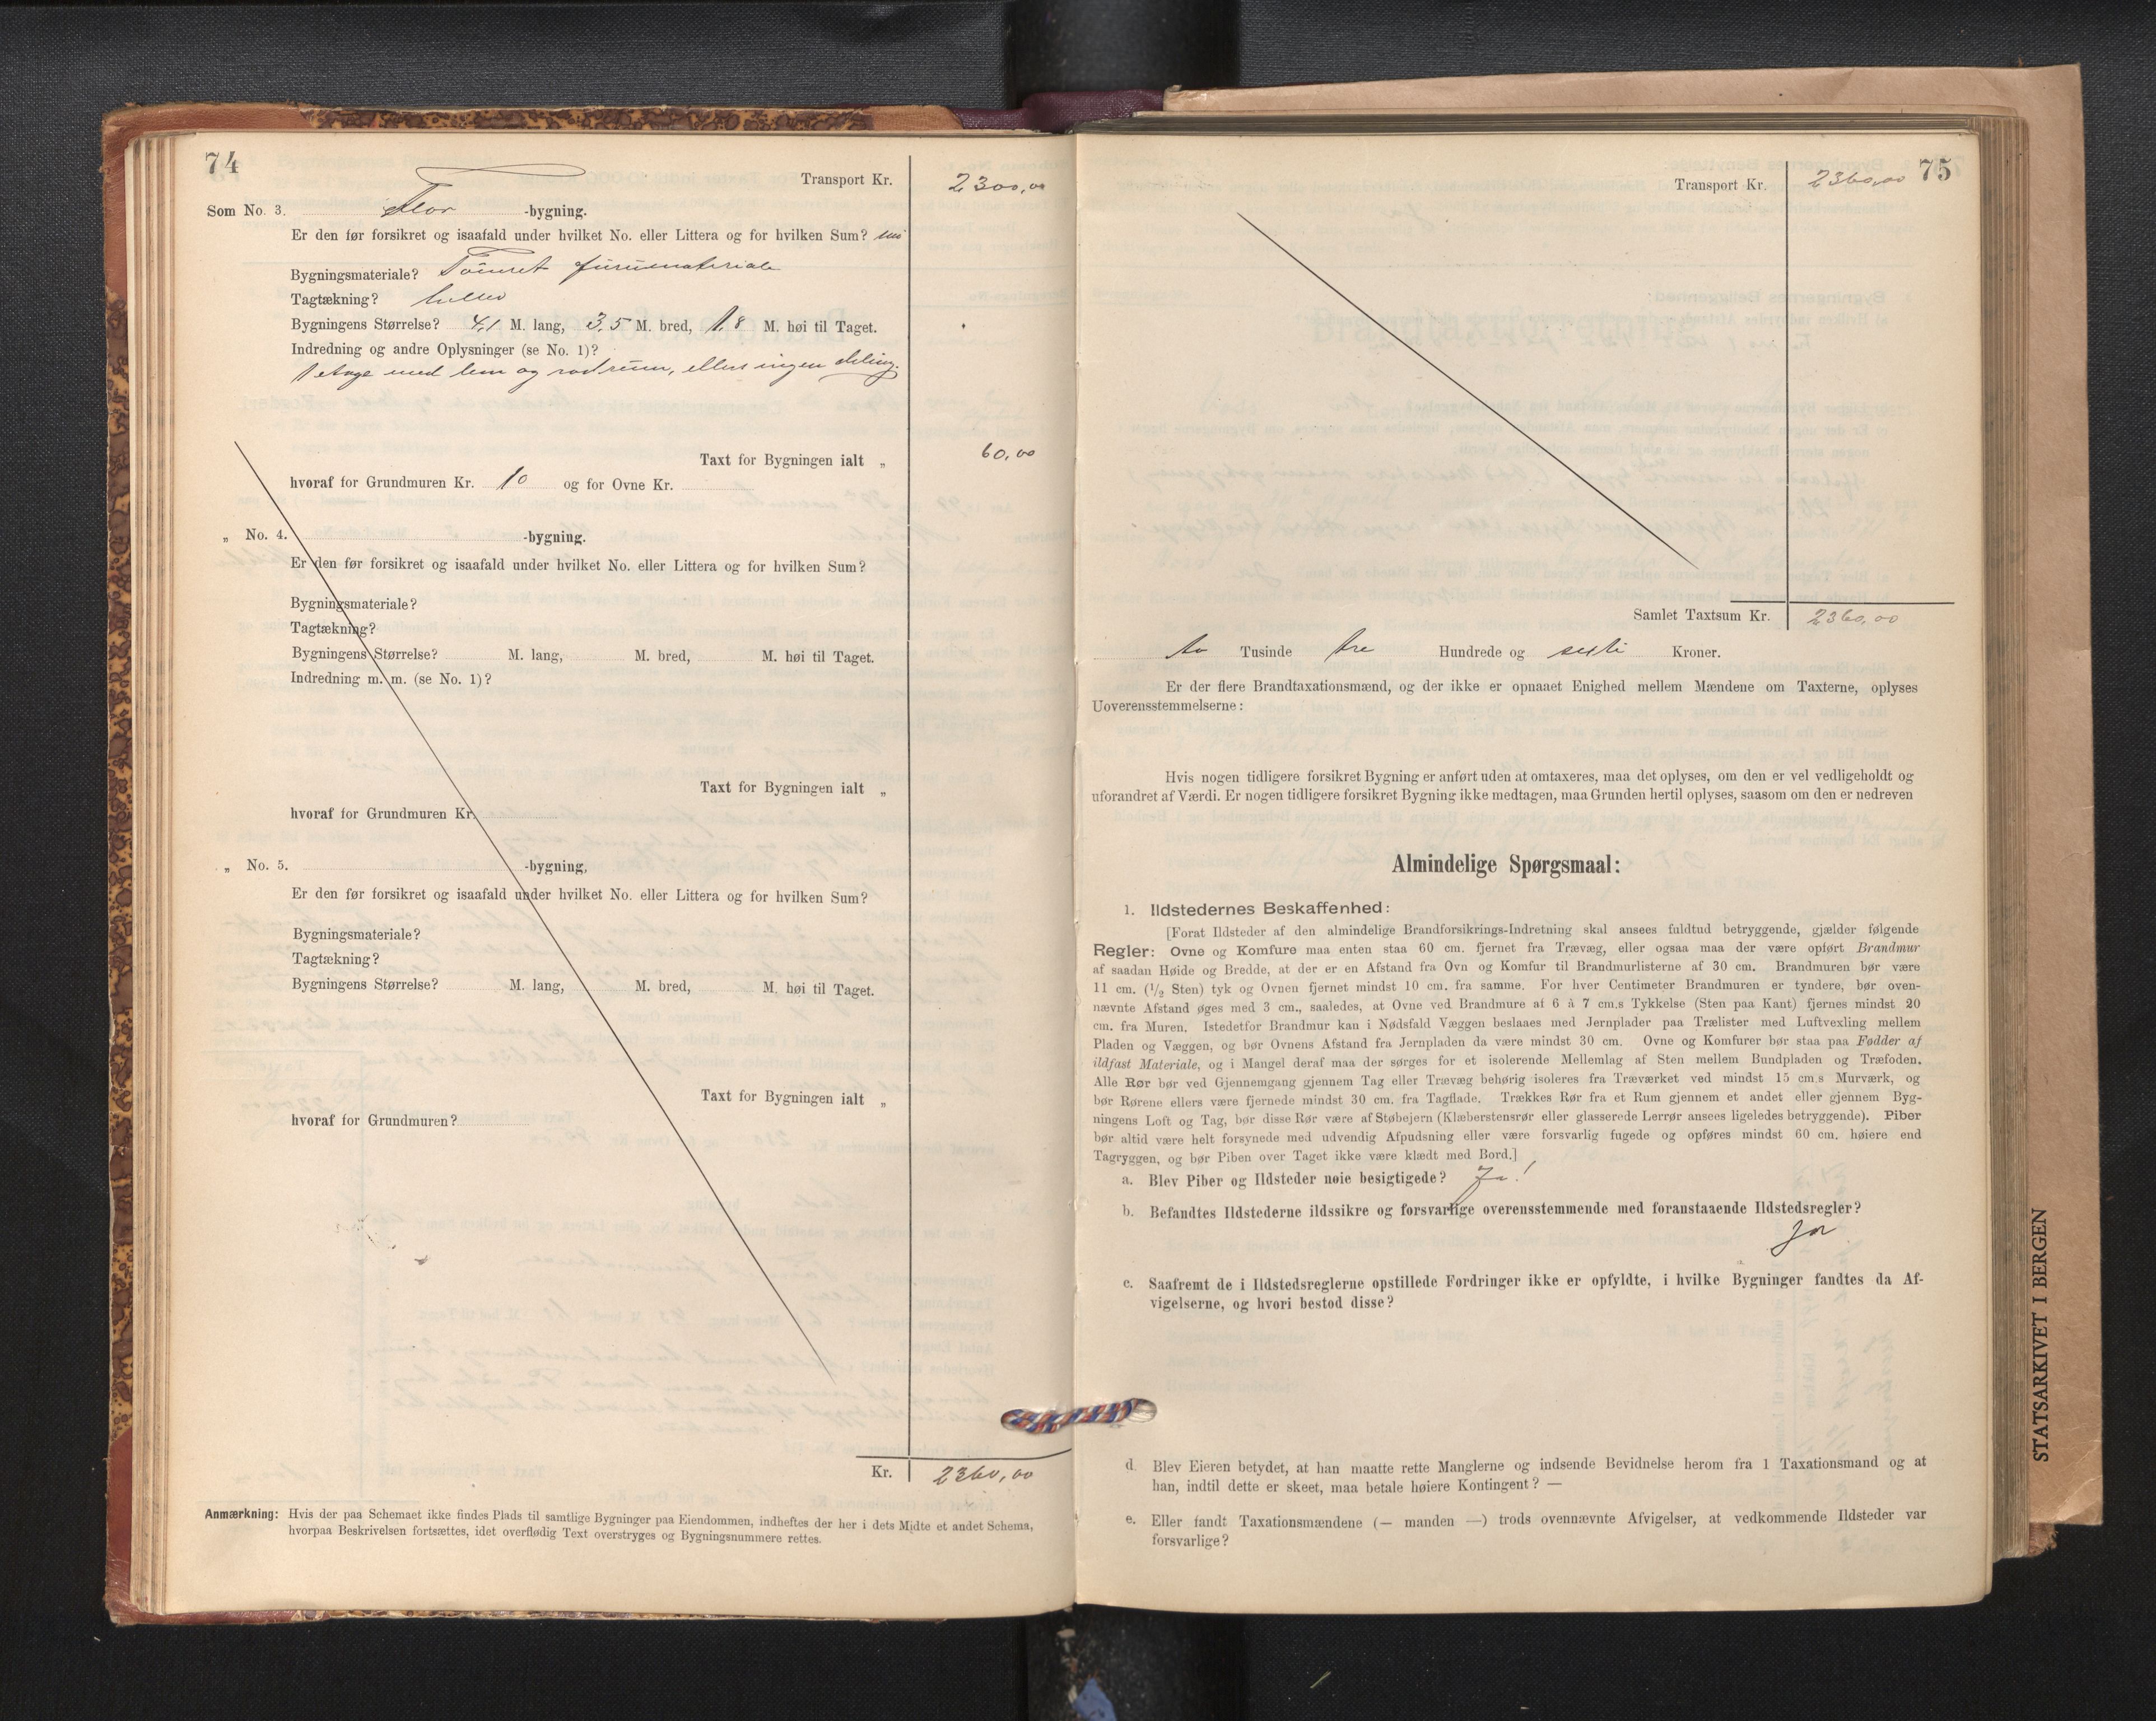 74
Transport Kr. 2300,00
Som No. 3. Flor -bygning.
Er den før forsikret og isaafald under hvilket No. eller Littera og for hvilken Sum?
Bygningsmateriale? Tømret furumateriale
Tagtækning?
Bygningens Størrelse? 4,1 M. lang, 3,5 M. bred, 1,8 M. høi til Taget.
Indredning og andre Oplysninger (se No. 1)?
1 etage med lem og rodrum, ellers ingen deling.
Taxt for Bygningen ialt „ 60,00
hvoraf for Grundmuren Kr. 10 og for Ovne Kr.
„ No. 4. -bygning.
Er den før forsikret og isaafald under hvilket No. eller Littera og for hvilken Sum?
Bygningsmateriale?
Tagtækning?
Bygningens Størrelse? M. lang, M. bred, M. høi til Taget.
Indredning m. m. (se No. 1)?
Taxt for Bygningen ialt „
hvoraf for Grundmuren Kr.
„ No. 5. -bygning,
Er den før forsikret og isaafald under hvilket No. eller Littera og for hvilken Sum?
Bygningsmateriale?
Tagtækning?
Bygningens Størrelse? M. lang, M. bred, M. høi til Taget.
Taxt for Bygningen ialt „
hvoraf for Grundmuren?
Kr. 2360,00
Anmærkning: Hvis der paa Schemaet ikke findes Plads til samtlige Bygninger paa Eiendommen, indheftes der her i dets Midte et andet Schema,
hvorpaa Beskrivelsen fortsættes, idet overflødig Text overstryges og Bygningsnummere rettes.
75
Transport Kr. 2360,00
Samlet Taxtsum Kr. 2360,00
to Tusinde tre Hundrede og sexti Kroner.
Er der flere Brandtaxationsmænd, og der ikke er opnaaet Enighed mellem Mændene om Taxterne, oplyses
Uoverensstemmelserne:
Hvis nogen tidligere forsikret Bygning er anført uden at omtaxeres, maa det oplyses, om den er vel vedligeholdt og
uforandret af Værdi. Er nogen tidligere forsikret Bygning ikke medtagen, maa Grunden hertil oplyses, saasom om den er nedreven
Almindelige Spørgsmaal:
1. Ildstedernes Beskaffenhed:
[Forat Ildsteder af den almindelige Brandforsikrings-Indretning skal ansees fuldtud betryggende, gjælder følgende
Regler: Ovne og Komfure maa enten staa 60 cm. fjernet fra Trævæg, eller ogsaa maa der være opført Brandmur
af saadan Høide og Bredde, at der er en Afstand fra Ovn og Komfur til Brandmurlisterne af 30 cm. Brandmuren bør være
11 cm. (1/2 Sten) tyk og Ovnen fjernet mindst 10 cm. fra samme. For hver Centimeter Brandmuren er tyndere, bør oven-
nævnte Afstand øges med 3 cm., saaledes, at Ovne ved Brandmure af 6 à 7 cm.s Tykkelse (Sten paa Kant) fjernes mindst 20
cm. fra Muren. Istedetfor Brandmur kan i Nødsfald Væggen beslaaes med Jernplader paa Trælister med Luftvexling mellem
Pladen og Væggen, og bør Ovnens Afstand fra Jernpladen da være mindst 30 cm. Ovne og Komfurer bør staa paa Fødder af
ildfast Materiale, og i Mangel deraf maa der sørges for et isolerende Mellemlag af Sten mellem Bundpladen og Træfoden.
Alle Rør bør ved Gjennemgang gjennem Tag eller Trævæg behørig isoleres fra Træværket ved mindst 15 cm.s Murværk, og
bør Rørene ellers være fjernede mindst 30 cm. fra Tagflade. Trækkes Rør fra et Rum gjennem et andet eller gjennem Byg-
ningens Loft og Tag, bør disse Rør være af Støbejern (Klæberstensrør eller glasserede Lerrør ansees ligeledes betryggende). Piber
bør altid være helt forsynede med udvendig Afpudsning eller være forsvarlig fugede og opføres mindst 60 cm. høiere end
Tagryggen, og bør Piben over Taget ikke være klædt med Bord.]
a. Blev Piber og Ildsteder nøie besigtigede? Ja!
b. Befandtes Ildstederne ildssikre og forsvarlige overensstemmende med foranstaaende Ildstedsregler?
Ja
c. Saafremt de i Ildstedsreglerne opstillede Fordringer ikke er opfyldte, i hvilke Bygninger fandtes da Af-
vigelserne, og hvori bestod disse?
d. Blev Eieren betydet, at han maatte rette Manglerne og indsende Bevidnelse herom fra 1 Taxationsmand og at
han, indtil dette er skeet, maa betale høiere Kontingent? —
e. Eller fandt Taxationsmændene (— manden —) trods ovennævnte Afvigelser, at vedkommende Ildsteder var
forsvarlige?
STATSARKIVET I BERGEN